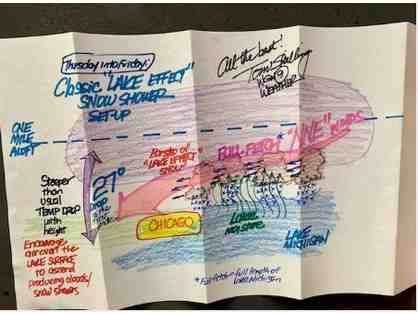 Thursday into Friday:
Classic "LAKE EFFECT"
SNOW SHOWER
SET-UP
All the best!
WGN 9
WEATHER
ONE
MILE
ALOFT
FULL-FETCH* "NNE" WINDS
Bursts of
"LAKE EFFECT
SNOW"
27°
DROP
Steeper
than
usual
TEMP DROP
with
height
CHICAGO
LAKE
MICHIGAN
Encourages
air over the
LAKE SURFACE
to ascend
producing clouds/
snow showers
*Full fetch = full length of
Lake Michigan